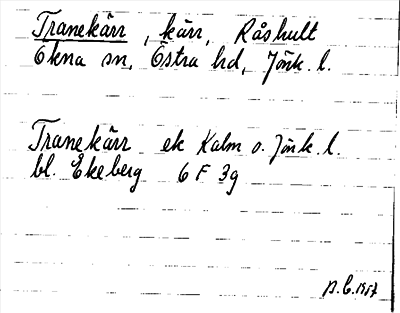 Tranekärr, kärr, Råshult
Ökna sn, Östra hd, Jönk. l.
Tranekärr ek Kalm o. Jönk. l.
bl. Ekeberg 6 F 3g